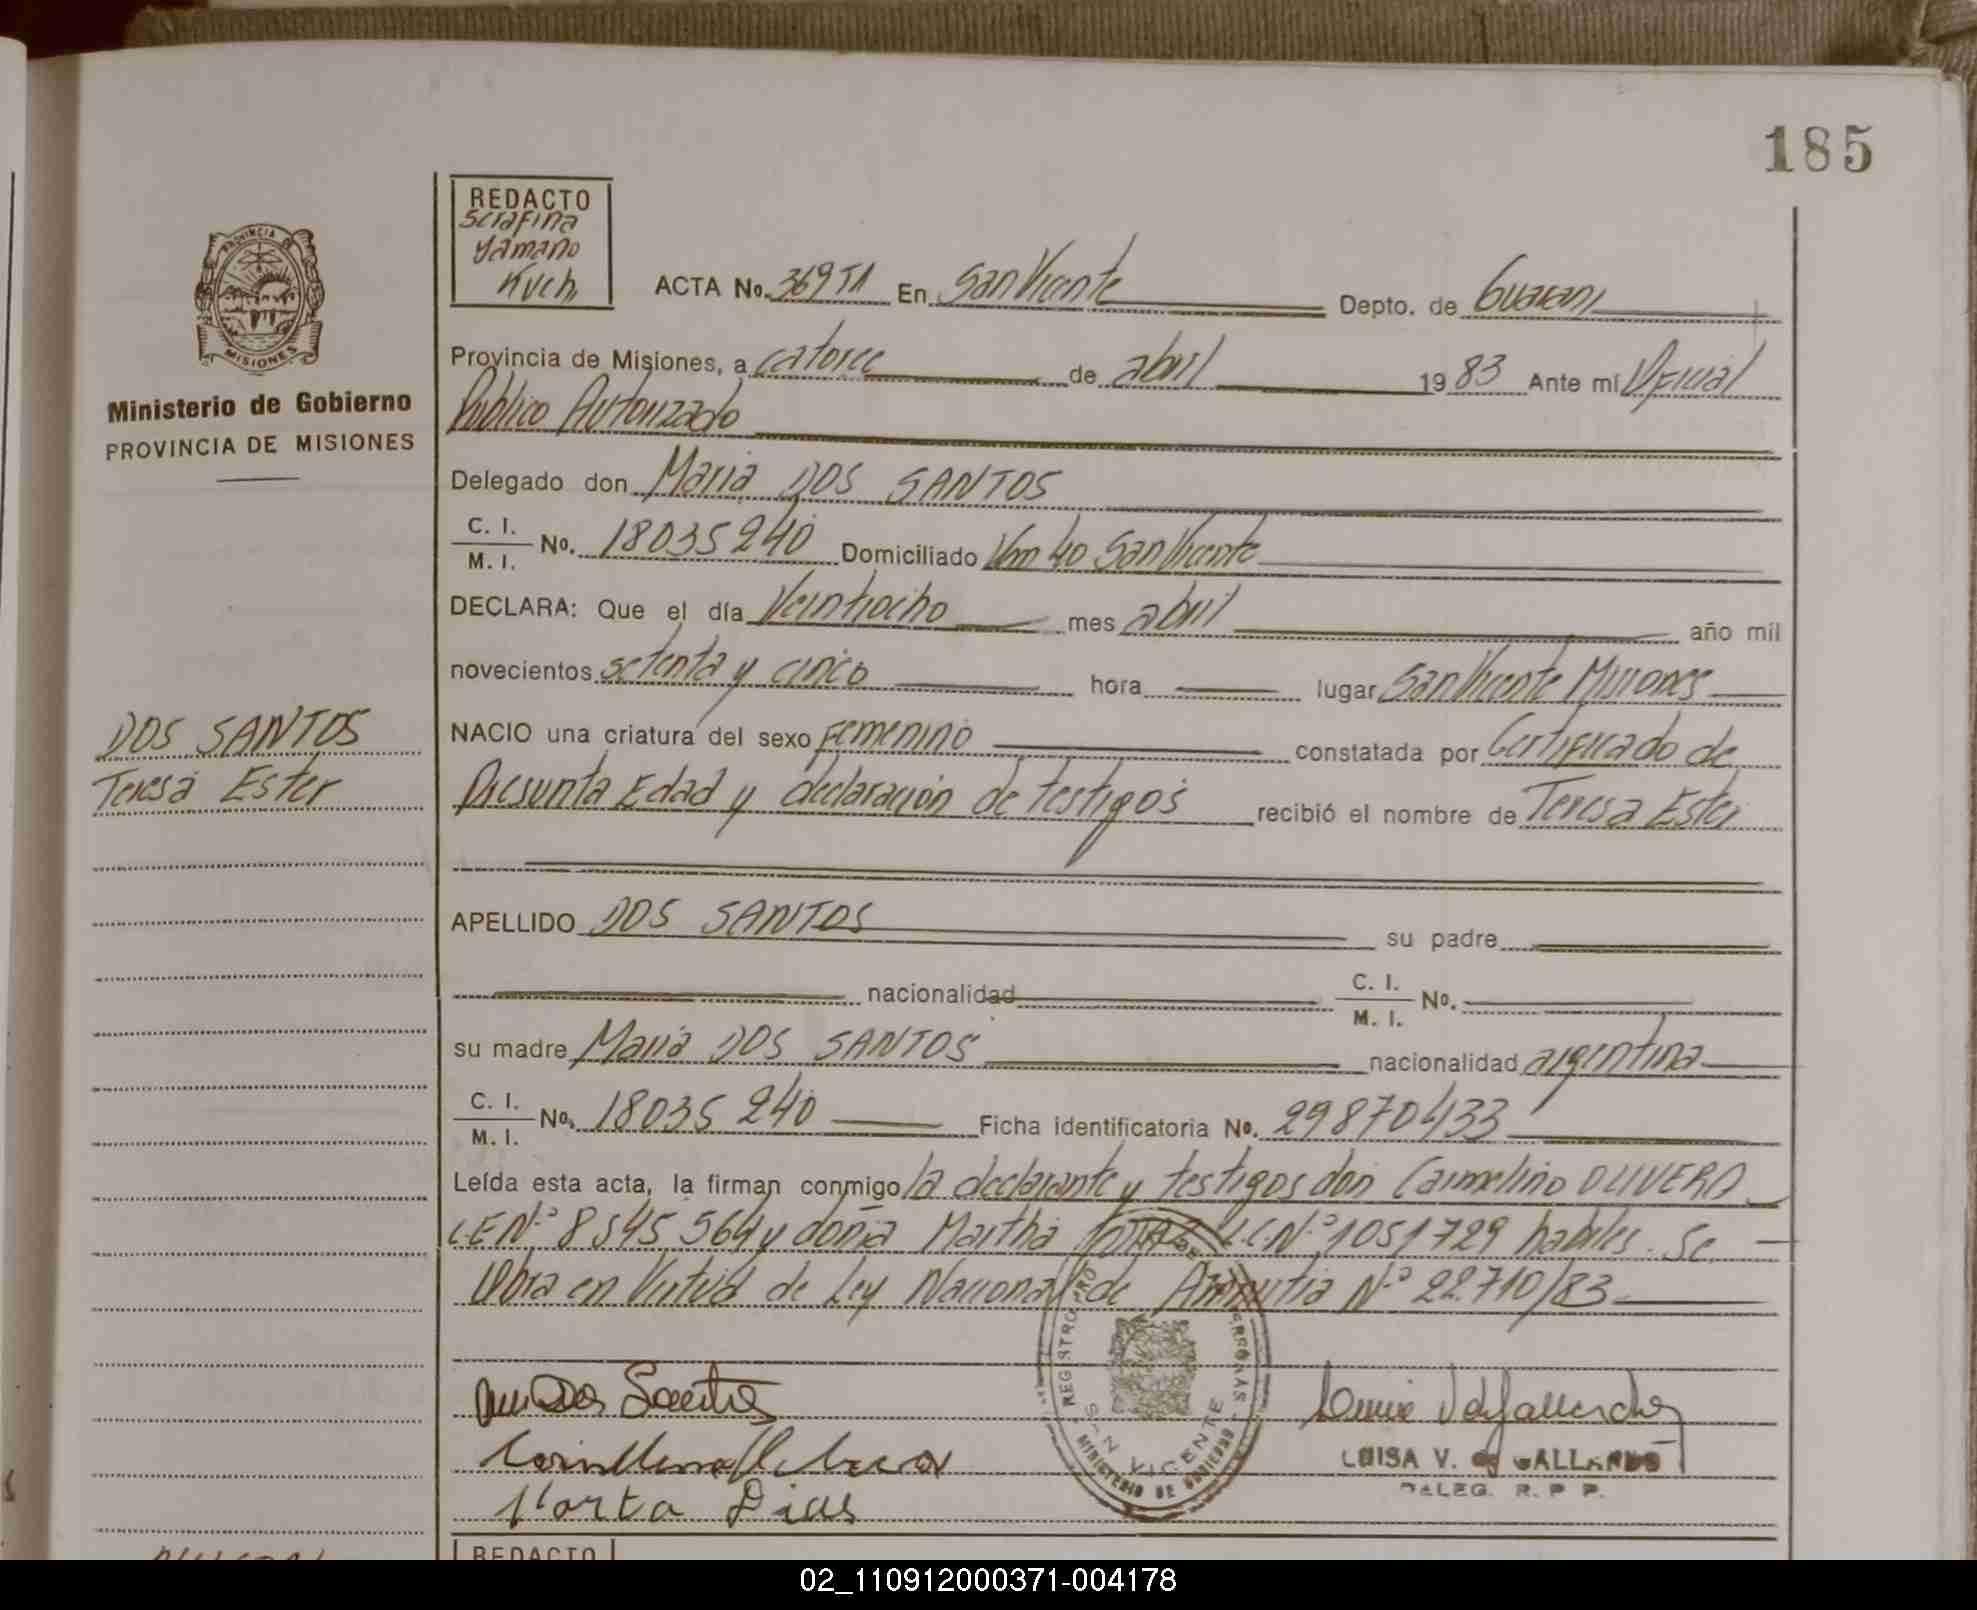 185
REDACTO
Serafina
Yamano
Kuch
ACTA No. 369 T1 En San Vicente Depto. de Guarani
PROVINCIA DE
MISIONES
Provincia de Misiones, a catorce de abril 1983 Ante mí Oficial
Ministerio de Gobierno
Público Autorizado
PROVINCIA DE MISIONES
Delegado don Maria DOS SANTOS
C. I. M. I. No. 18035240 Domiciliado Km 40 San Vicente
DECLARA: Que el día Veintiocho mes abril año mil
novecientos setenta y cinco hora lugar San Vicente Misiones
DOS SANTOS
NACIO una criatura del sexo Femenino constatada por Certificado de
Teresa Ester
Presunta Edad y declaración de testigos recibió el nombre de Teresa Ester
APELLIDO DOS SANTOS su padre
nacionalidad C. I. M. I. No.
su madre Maria DOS SANTOS nacionalidad argentina
C. I. M. I. No. 18035240 Ficha identificatoria No. 29870433
Leída esta acta, la firman conmigo la declarante y testigos don Carmelino OLIVERA
L.E.Nº 8545564 y doña Martha L.C.Nº 1051729 habiles. Se
labra en Virtud de Ley Nacional de Amnistia Nº 22.710/83
REGISTRO
SAN VICENTE
MINISTERIO DE GOBIERNO
Dos Santos
LUISA V. de GALLARDO
DELEG. R. P. P.
Marta Dias
REDACTO
02_110912000371-004178